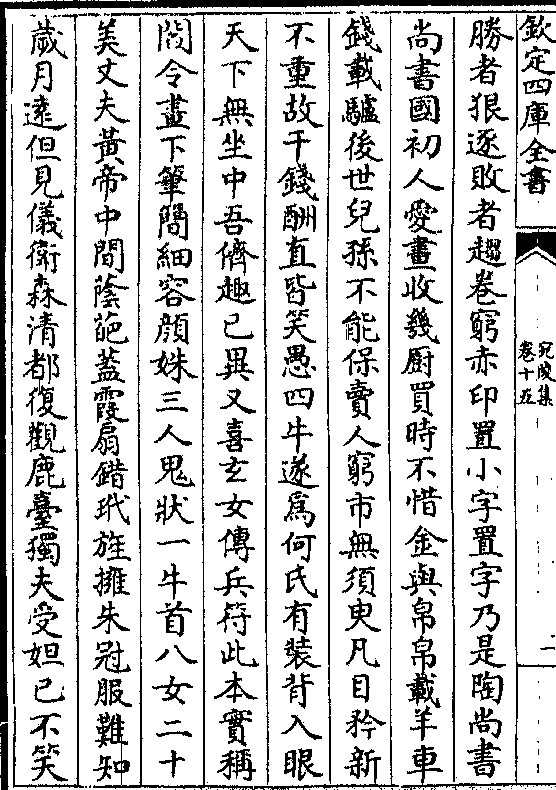 欽定四庫全書
宛陵集
卷十五
一
勝者狠逐敗者趨卷窮赤印置小字置字乃是陶尚書
尚書國初人愛畫收幾厨買時不惜金與帛帛載羊車
錢載驢後世兒孫不能保賣人窮市無須臾凡目矜新
不重故千錢酬直皆笑愚四牛遂為何氏有裝背入眼
天下無坐中吾儕趣已異又喜玄女傳兵符此本實稱
閻令畫下筆簡細容顔姝三人鬼狀一牛首八女二十
美丈夫黃帝中間蔭葩蓋霞扇錯玳旌擁朱冠服難知
歲月逺但見儀衛森清都復觀鹿臺獨夫受妲己不笑